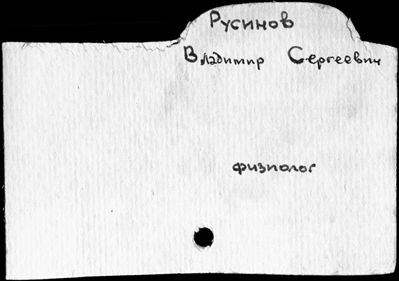 Русинов
Владимир Сергеевич
физиолог